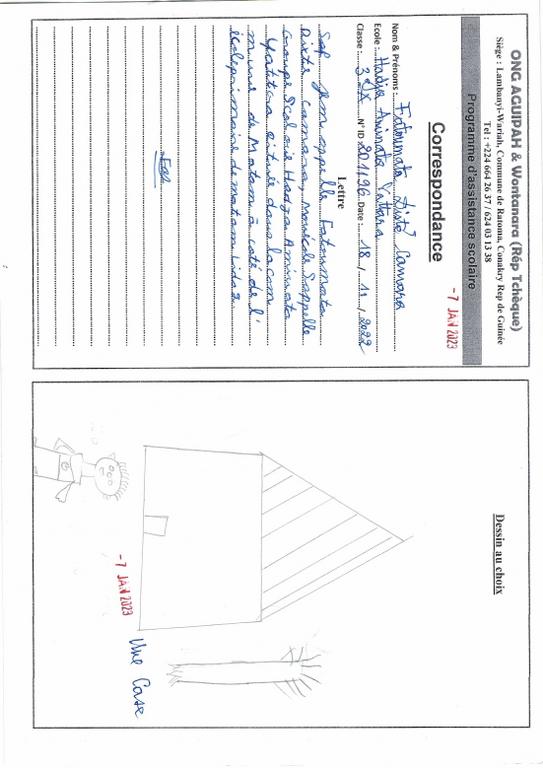 ONG AGUIPAH & Wontanara (Rép Tchèque)
Siège : Lambanyi-Wariah, Commune de Ratoma, Conakry Rep de Guinée
Tel : +224 664 26 37 / 624 03 13 38
Programme d'assistance scolaire
-7 JAN 2023
Correspondance
Nom & Prénoms : Fatoumata Diste Camara
Ecole : Hadja Aminata Yattara
Classe : 3 A N°ID 201196 Date : 18 / 11 / 2022
Lettre
appelle Fatoumata
Diste camara, s'appelle
Groupe Scolaire Hadja Aminata
Yattara située dans la com
mune de Matam à coté de l'
école primaire de matam Lido
Fin
Dessin au choix
-7 JAN 2023
Une Case